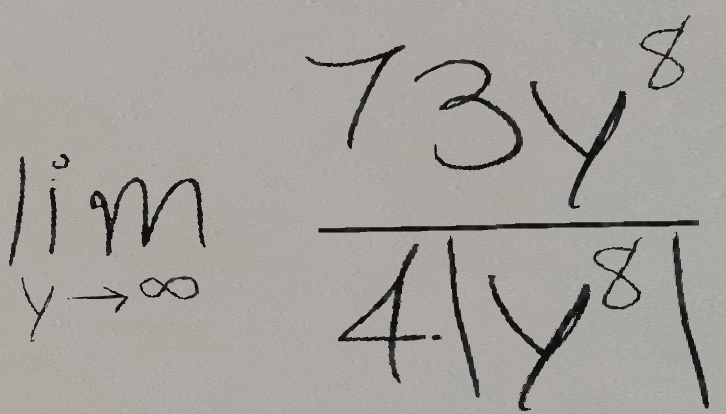 lim y→∞ 73y⁸ / 4|y⁸|